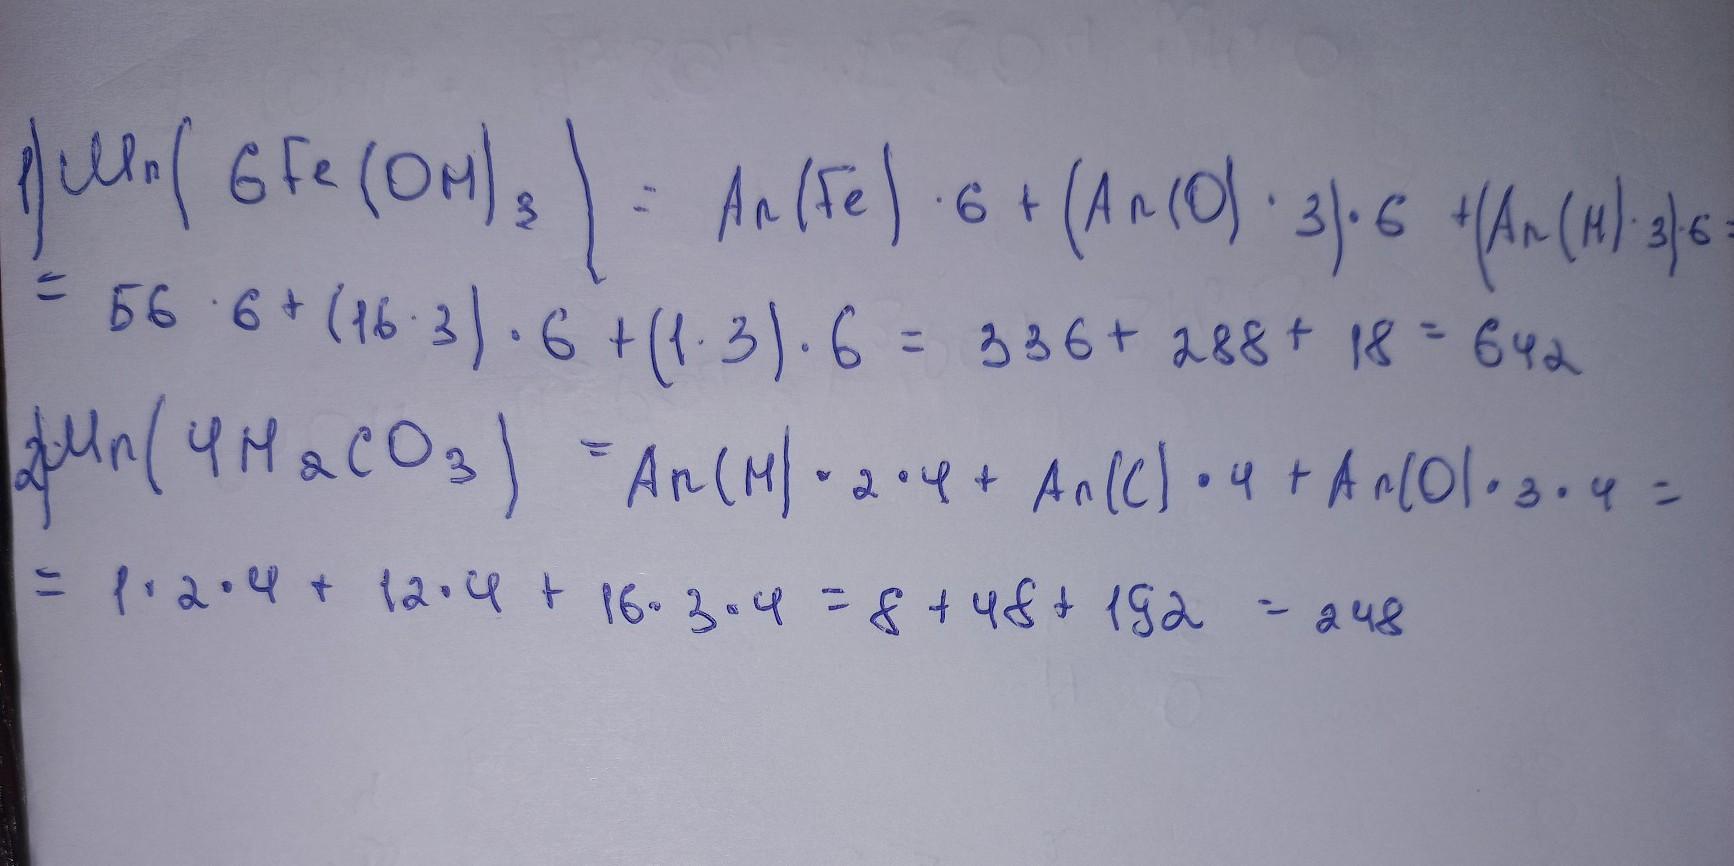 1) Mr(6Fe(OH)3) = Ar(Fe)·6+(Ar(O)·3)·6+(Ar(H)·3)·6=
= 56·6+(16·3)·6+(1·3)·6 = 336+288+18=642
2) Mr(4H2CO3) = Ar(H)·2·4+Ar(C)·4+Ar(O)·3·4=
= 1·2·4+12·4+16·3·4=8+48+192=248